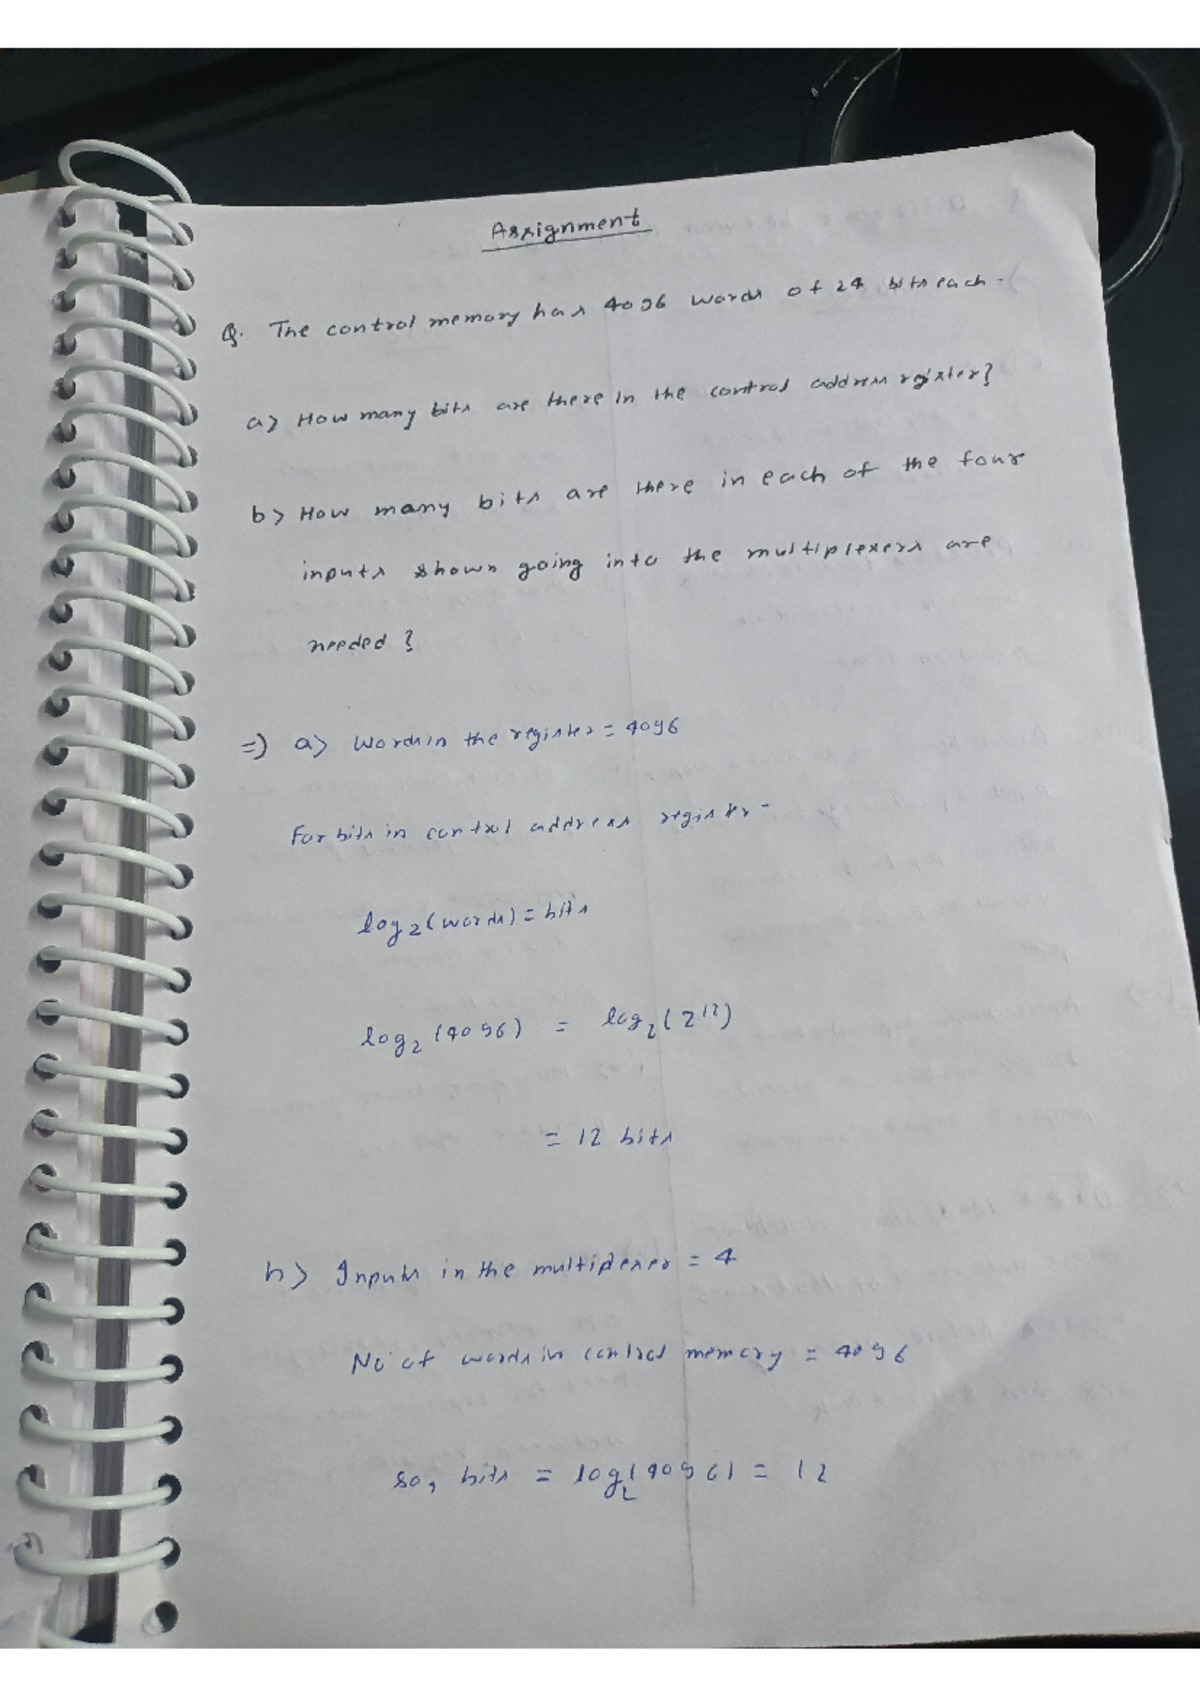 Assignment
Q. The control memory has 4096 words of 24 bits each.
a) How many bits are there in the control address rgister?
b) How many bits are there in each of the four
inputs shown going into the multiplexers are
needed?
=) a) Words in the register = 4096
For bits in control address register -
log2(words) = bits
log2(4096) = log2(2^12)
= 12 bits
b) Inputs in the multiplexer = 4
No of words in control memory = 4096
so, bits = log2(4096) = 12